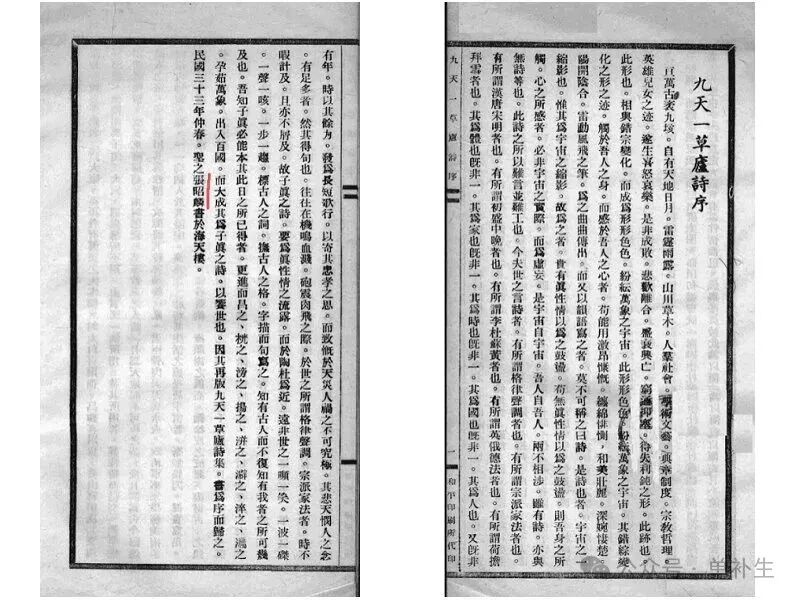 九天一草廬詩序
亘萬古袤九垓。自有天地日月。雷霆雨露。山川草木。人羣社會。學術文藝。典章制度。宗教哲理。
英雄兒女之迹。遂生喜怒哀樂。是非成敗。悲歡離合。盛衰興亡。窮通抑塞。得失利鈍之形。此跡也。
此形也。相與錯宗變化。而成爲形形色色。紛紜萬象之宇宙。此形形色色。紛紜萬象之宇宙。其錯綜變
化之形之迹。觸於吾人之身。而感於吾人之心者。苟能用激昂慷慨。纏綿悱惻。和美壯麗。深婉悽楚。
陽開陰合。雷動風飛之筆。爲之曲曲傳出。而又以韻語寫之者。莫不可稱之曰詩。是詩也者。宇宙之
縮影也。惟其爲宇宙之縮影。故爲之者。貴有眞性情以爲之鼓盪。苟無眞性情以爲之鼓盪。則吾身之所
觸。心之所感者。必非宇宙之實際。而爲虛妄。是宇宙自宇宙。吾人自吾人。兩不相涉。雖有詩。亦與
無詩等也。此詩之所以難言並難工也。今夫世之言詩者。有所謂格律聲調者也。有所謂宗派家法者也。
有所謂漢唐宋明者也。有所謂初盛中晚者也。有所謂李杜蘇黃者也。有所謂英俄德法者也。有所謂荷擔
拜雪者也。其爲體也旣非一。其爲家也旣非一。其爲時也旣非一。其爲國也旣非一。其爲人也。又旣非
九天一草廬詩序 一 和平印刷所代印
有年。時以其餘力。發爲長短歌行。以寄其忠孝之思。而致慨於天災人禍之不可究極。其悲天憫人之念
。有足多者。然其得句也。往往在機鳴血濺。砲震肉飛之際。於世之所謂格律聲調。宗派家法者。時不
暇計及。且亦不屑及。故子眞之詩。要爲眞性情之流露。而於陶杜爲近。遠非世之一嚬一笑。一波一磔
。一聲一咳。一步一趨。標古人之詞。撫古人之格。字描而句寫之。知有古人而不復知有我者之所可幾
及也。吾知子眞必能本其此日之所已得者。更進而昌之、恍之、滂之、揚之、洴之、澼之、淬之、濄之
。孕茹萬象。出入百國。而大成其爲子眞之詩。以饗世也。因其再版九天一草廬詩集。書爲序而歸之。
民國三十三年仲春。聖之張昭麟書於海天樓。
公众号·单补生